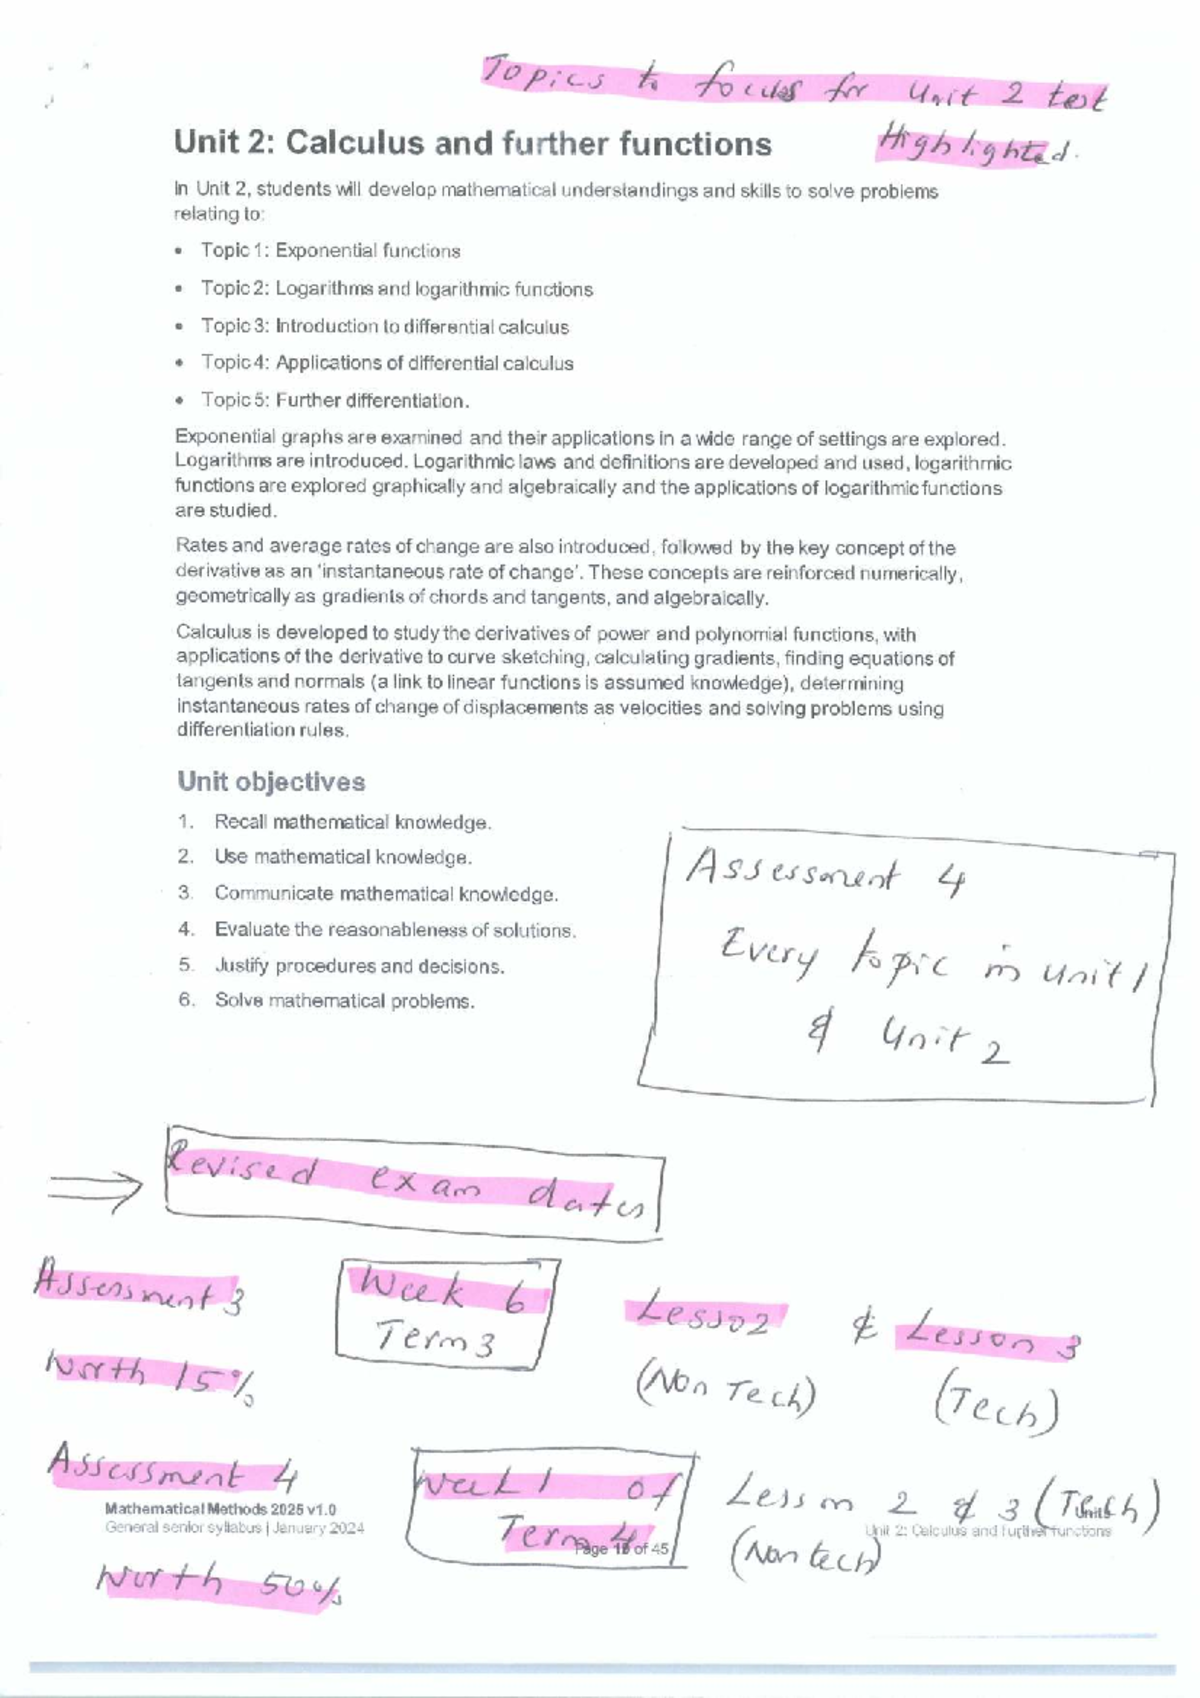 Topics to focus for Unit 2 test
Highlighted.
Unit 2: Calculus and further functions
In Unit 2, students will develop mathematical understandings and skills to solve problems
relating to:
• Topic 1: Exponential functions
• Topic 2: Logarithms and logarithmic functions
• Topic 3: Introduction to differential calculus
• Topic 4: Applications of differential calculus
• Topic 5: Further differentiation.
Exponential graphs are examined and their applications in a wide range of settings are explored.
Logarithms are introduced. Logarithmic laws and definitions are developed and used, logarithmic
functions are explored graphically and algebraically and the applications of logarithmic functions
are studied.
Rates and average rates of change are also introduced, followed by the key concept of the
derivative as an 'instantaneous rate of change'. These concepts are reinforced numerically,
geometrically as gradients of chords and tangents, and algebraically.
Calculus is developed to study the derivatives of power and polynomial functions, with
applications of the derivative to curve sketching, calculating gradients, finding equations of
tangents and normals (a link to linear functions is assumed knowledge), determining
instantaneous rates of change of displacements as velocities and solving problems using
differentiation rules.
Unit objectives
1. Recall mathematical knowledge.
2. Use mathematical knowledge.
3. Communicate mathematical knowledge.
4. Evaluate the reasonableness of solutions.
5. Justify procedures and decisions.
6. Solve mathematical problems.
Assessment 4
Every topic in unit 1
& Unit 2
Revised exam dates
Assessment 3 Week 6 Lesso2 & Lesson 3
Term 3
Worth 15% (Non Tech) (Tech)
Assessment 4 Week 1 of Lesson 2 & 3 (Tech)
Mathematical Methods 2025 v1.0
General senior syllabus | January 2024 Term 4 Unit 2: Calculus and further functions
Page of 45 (Non tech)
Worth 50%